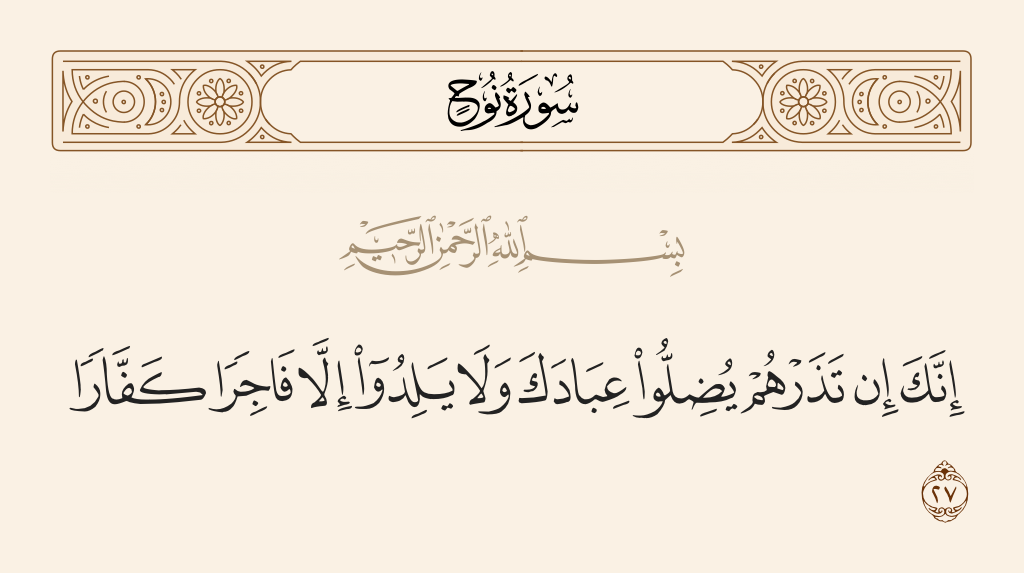 سُورَةُ نُوحٍ
بِسْمِ ٱللَّهِ ٱلرَّحْمَٰنِ ٱلرَّحِيمِ
إِنَّكَ إِن تَذَرْهُمْ يُضِلُّوا۟ عِبَادَكَ وَلَا يَلِدُوٓا۟ إِلَّا فَاجِرًا كَفَّارًا
٢٧